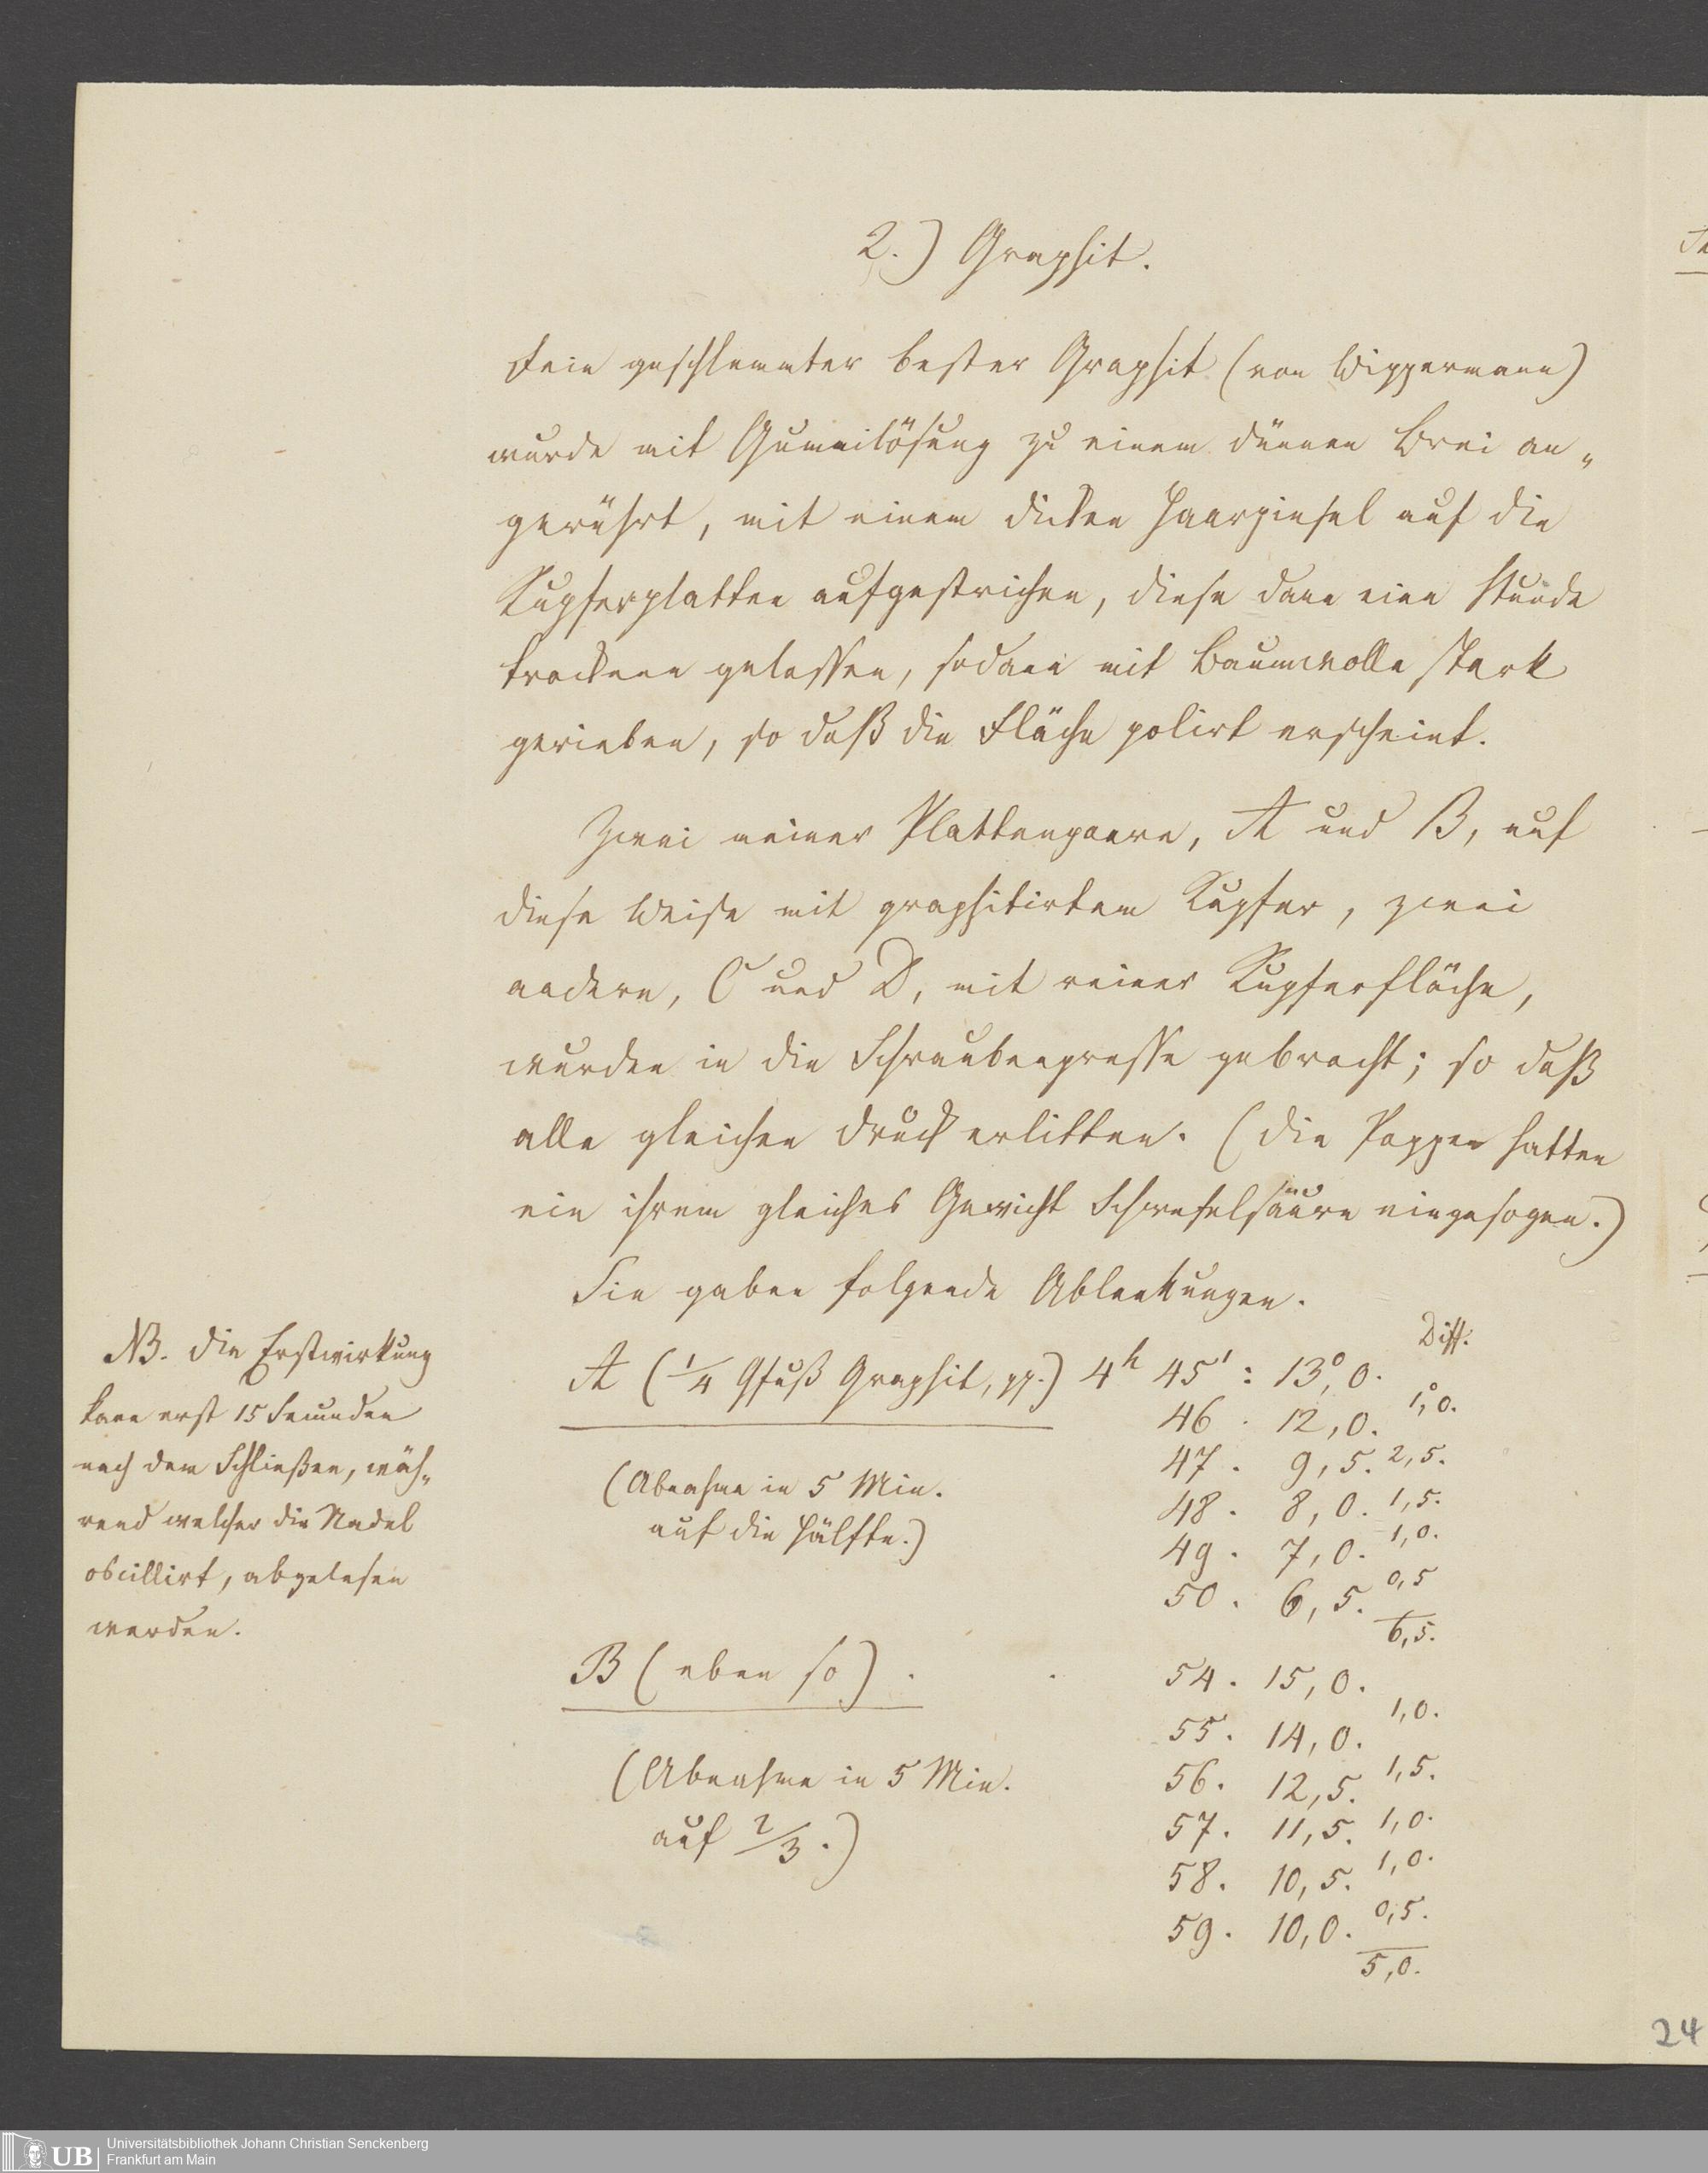 2.) Graphit.
Fein geschlemmter bester Graphit (von Wippermann)
wurde mit Gumilösung zu einem dünnen Brei an„
gerührt, mit einem dicken Haarpinsel auf die
Kupferplatten aufgestrichen, diese dann eine Stunde
trocknen gelassen, sodann mit Baumwolle stark
gerieben, so daß die Fläche polirt erscheint.
Zwei meiner Plattenpaare, A und B, auf
diese Weise mit graphitirtem Kupfer, zwei
andere, C und D, mit reiner Kupferfläche,
wurden in die Schraubenpresse gebracht; so daß
alle gleichen Druck erlitten. (Die Pappen hatten
ein ihrem gleiches Gewicht Schwefelsäure eingesogen.)
Sie gaben folgende Ablenkungen.
NB. Die Erstwirkung
kann erst 15 Secunden
nach dem Schließen, wäh„
rend welcher die Nadel
oscillirt, abgelesen
werden.
Diff.
A (1/4 Qfuß Graphit, pp.) 4h 45' : 13°,0.
46 . 12,0. 1°,0.
47 . 9,5. 2,5.
(Abnahme in 5 Min.
48 . 8,0. 1,5.
auf die Hälfte.)
49 . 7,0. 1,0.
50 . 6,5. 0,5
6,5.
B (eben so) . . 54 . 15,0.
55 . 14,0. 1,0.
(Abnahme in 5 Min.
56 . 12,5. 1,5.
auf 2/3.)
57 . 11,5. 1,0.
58 . 10,5. 1,0.
59 . 10,0. 0,5.
5,0.
24
UB Universitätsbibliothek Johann Christian Senckenberg
Frankfurt am Main